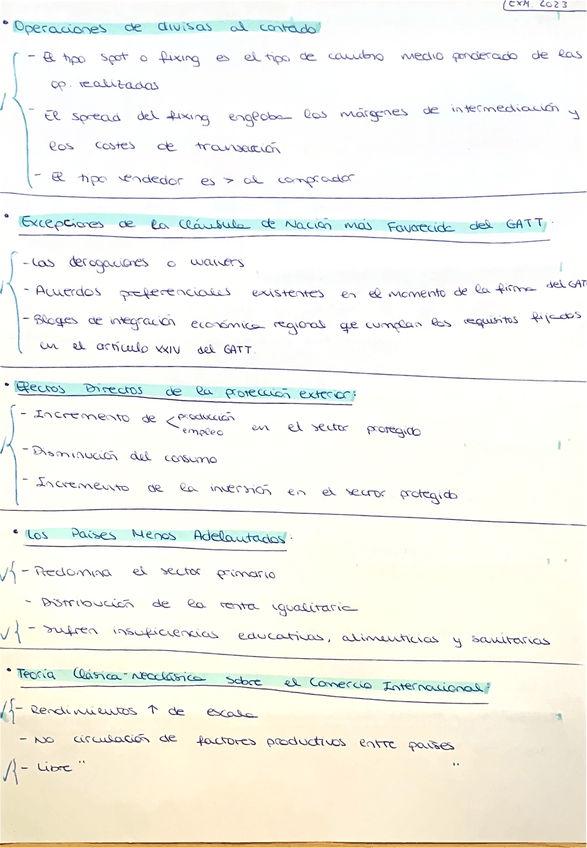 EXM 2023
• Operaciones de divisas al contado
- El tipo spot o fixing es el tipo de cambio medio ponderado de las
op. realizadas
- El spread del fixing engloba los márgenes de intermediación y
los costes de transacción
- El tipo vendedor es > al comprador
• Excepciones de la Cláusula de Nación más Favorecida del GATT.
- Las derogaciones o waivers
- Acuerdos preferenciales existentes en el momento de la firma del GATT
- Bloques de integración económica regional que cumplan los requisitos fijados
en el artículo XXIV del GATT.
• Efectos Directos de la protección exterior:
- Incremento de < producción
empleo en el sector protegido
- Disminución del consumo
- Incremento de la inversión en el sector protegido
• Los Países Menos Adelantados.
- Predomina el sector primario
- Distribución de la renta igualitaria
- Sufren insuficiencias educativas, alimenticias y sanitarias
• Teoría Clásica-Neoclásica sobre el Comercio Internacional:
- Rendimientos ↑ de escala
- No circulación de factores productivos entre países
- Libre " "